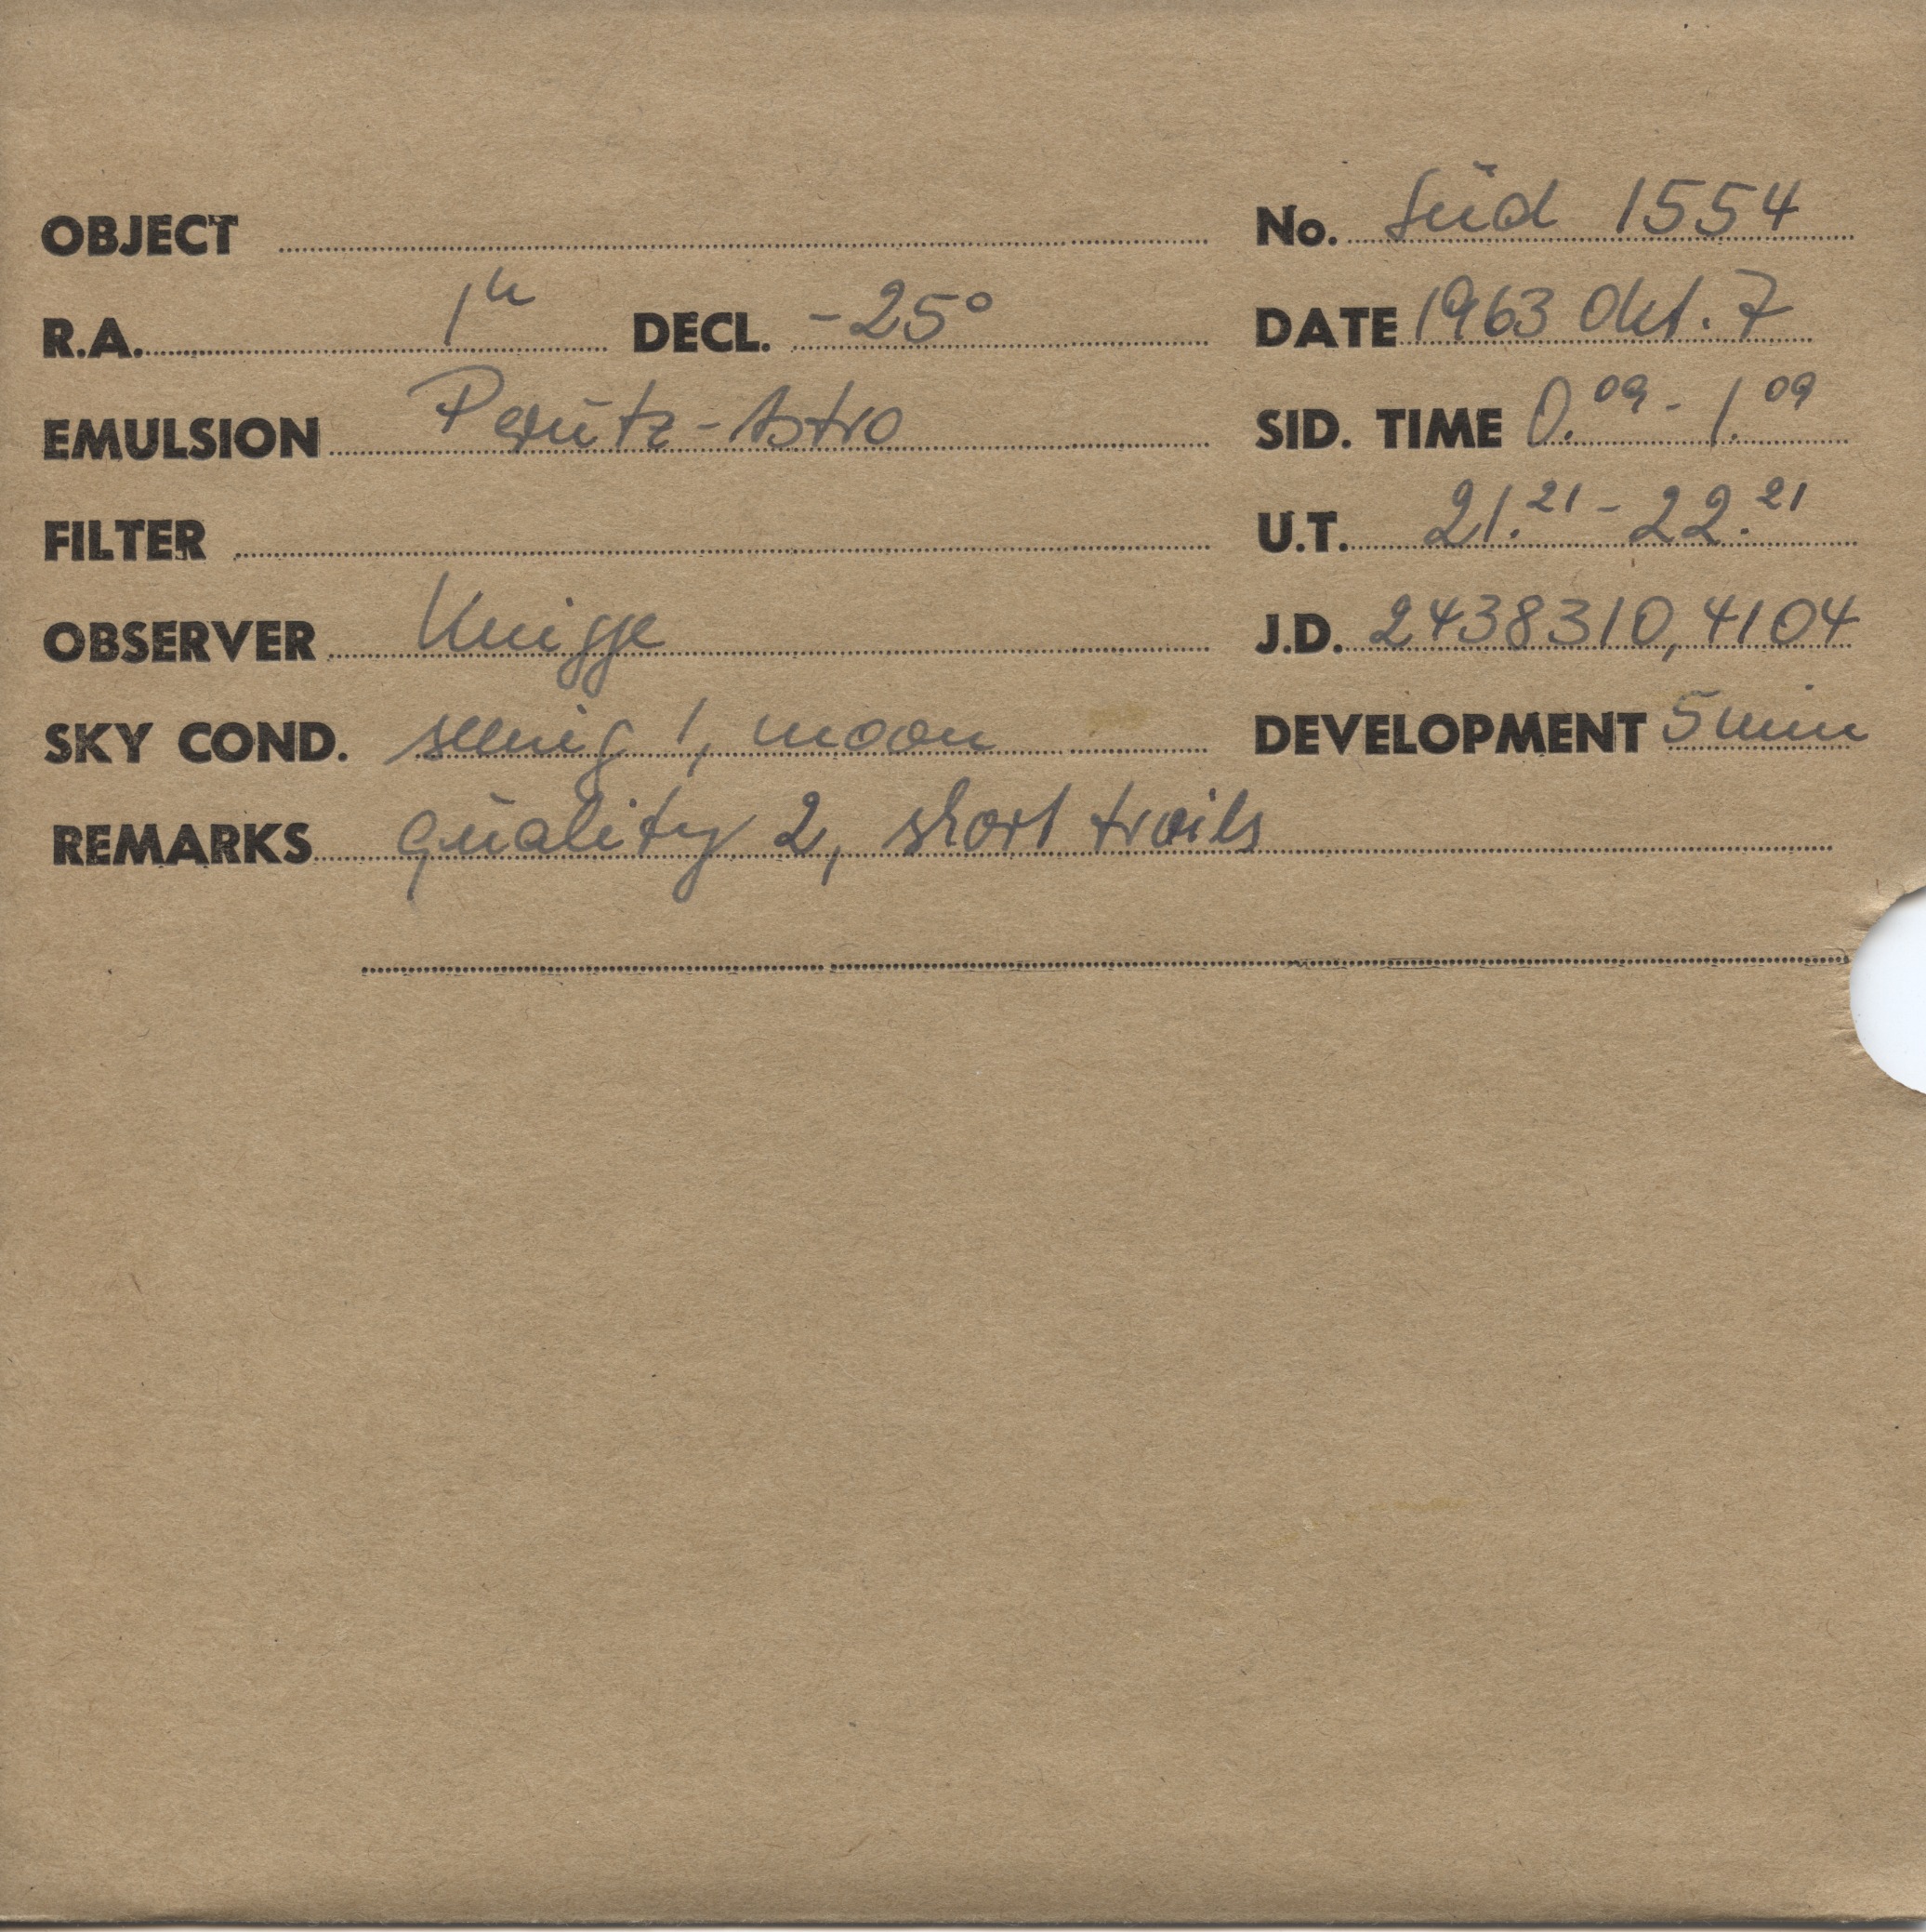 OBJECT No. Süd 1554
R.A. 1h DECL. -25° DATE 1963 Okt. 7
EMULSION Perutz-Astro SID. TIME 0.09 - 1.09
FILTER U.T. 21.21 - 22.21
OBSERVER Knigge J.D. 2438310,4104
SKY COND. seeing 1, moon DEVELOPMENT 5 min
REMARKS quality 2, short trails